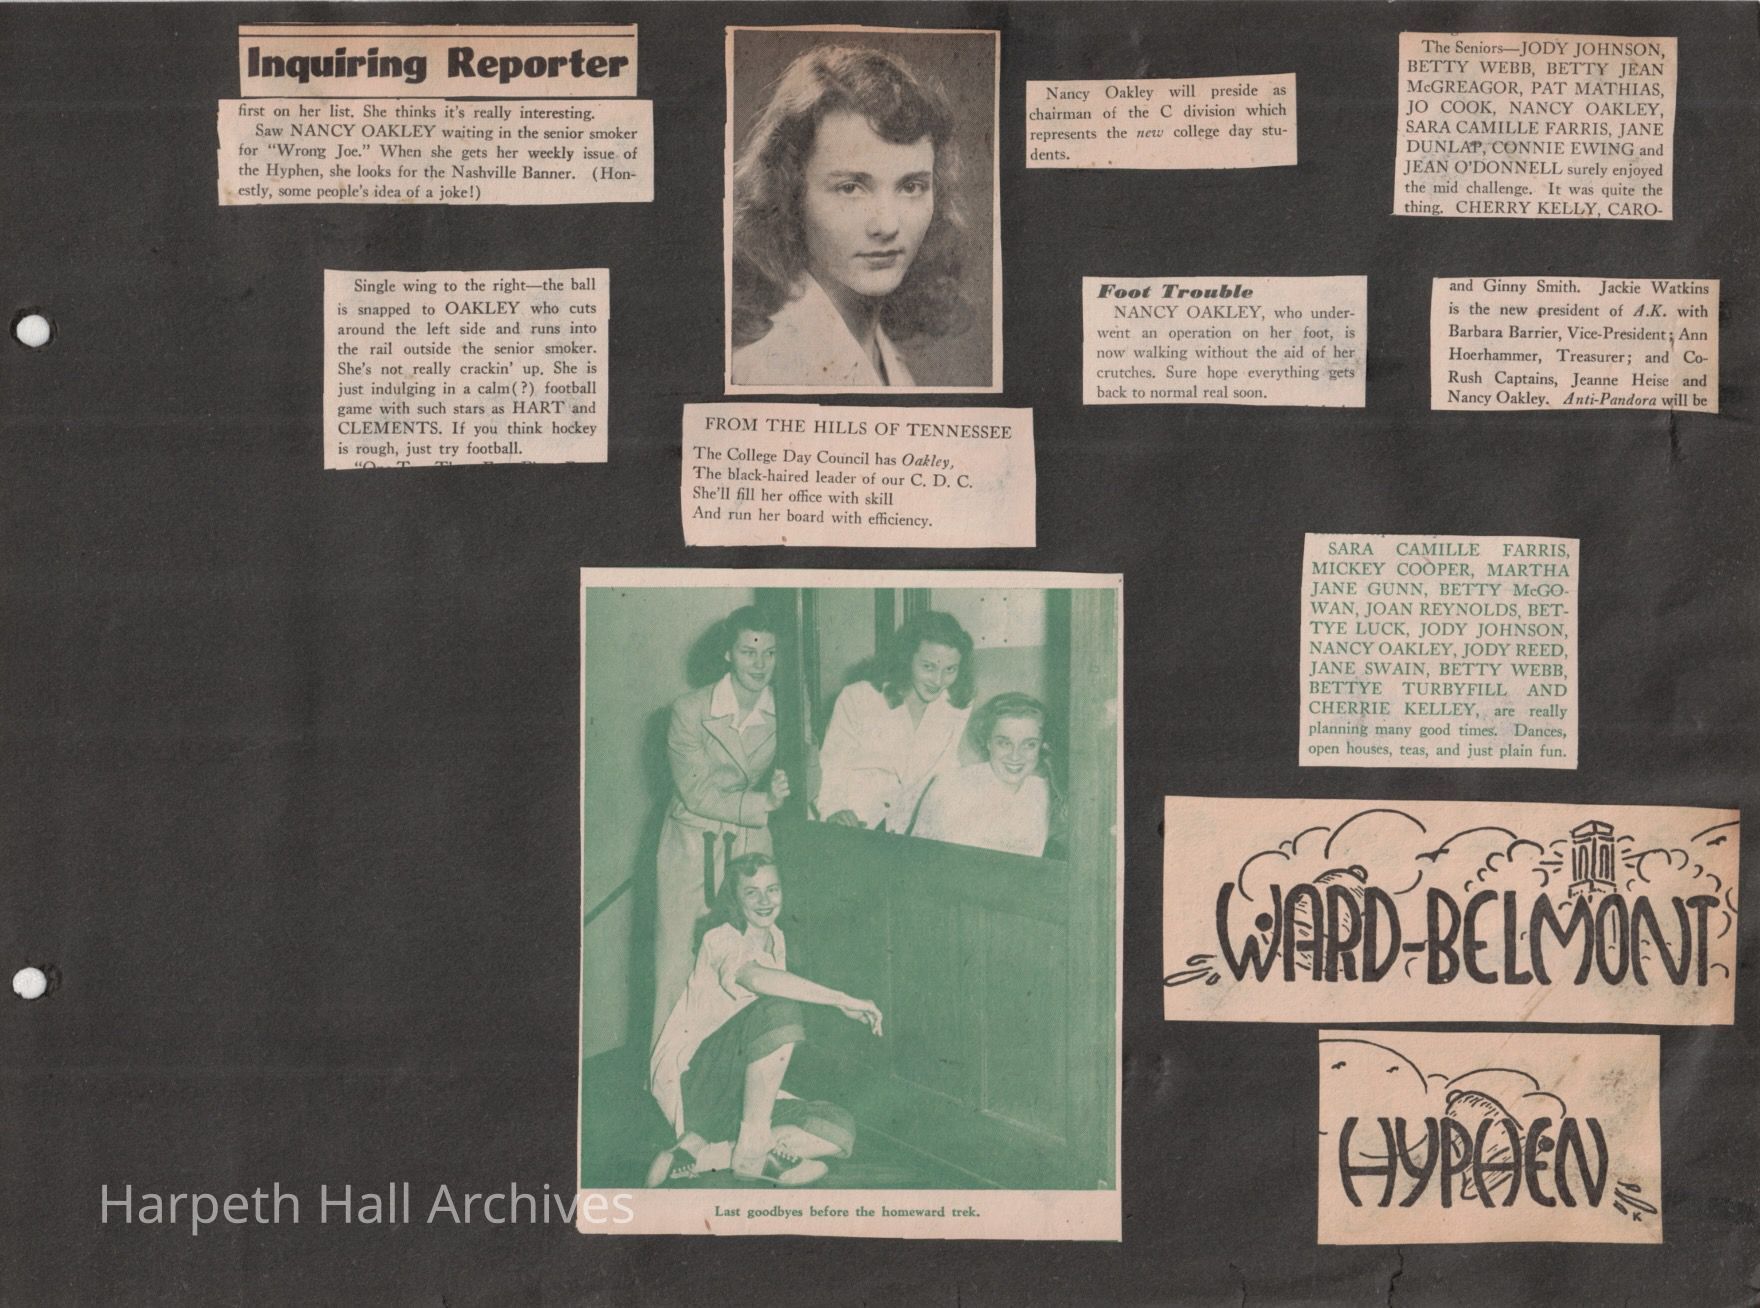 Inquiring Reporter
first on her list. She thinks it's really interesting.
Saw NANCY OAKLEY waiting in the senior smoker
for "Wrong Joe." When she gets her weekly issue of
the Hyphen, she looks for the Nashville Banner. (Hon-
estly, some people's idea of a joke!)
Single wing to the right—the ball
is snapped to OAKLEY who cuts
around the left side and runs into
the rail outside the senior smoker.
She's not really crackin' up. She is
just indulging in a calm(?) football
game with such stars as HART and
CLEMENTS. If you think hockey
is rough, just try football.
FROM THE HILLS OF TENNESSEE
The College Day Council has Oakley,
The black-haired leader of our C. D. C.
She'll fill her office with skill
And run her board with efficiency.
Nancy Oakley will preside as
chairman of the C division which
represents the new college day stu-
dents.
Foot Trouble
NANCY OAKLEY, who under-
went an operation on her foot, is
now walking without the aid of her
crutches. Sure hope everything gets
back to normal real soon.
The Seniors—JODY JOHNSON,
BETTY WEBB, BETTY JEAN
McGREAGOR, PAT MATHIAS,
JO COOK, NANCY OAKLEY,
SARA CAMILLE FARRIS, JANE
DUNLAP, CONNIE EWING and
JEAN O'DONNELL surely enjoyed
the mid challenge. It was quite the
thing. CHERRY KELLY, CARO-
and Ginny Smith. Jackie Watkins
is the new president of A.K. with
Barbara Barrier, Vice-President; Ann
Hoerhammer, Treasurer; and Co-
Rush Captains, Jeanne Heise and
Nancy Oakley. Anti-Pandora will be
SARA CAMILLE FARRIS,
MICKEY COOPER, MARTHA
JANE GUNN, BETTY McGO-
WAN, JOAN REYNOLDS, BET-
TYE LUCK, JODY JOHNSON,
NANCY OAKLEY, JODY REED,
JANE SWAIN, BETTY WEBB,
BETTYE TURBYFILL AND
CHERRIE KELLEY, are really
planning many good times. Dances,
open houses, teas, and just plain fun.
WARD-BELMONT
HYPHEN
K
Last goodbyes before the homeward trek.
Harpeth Hall Archives